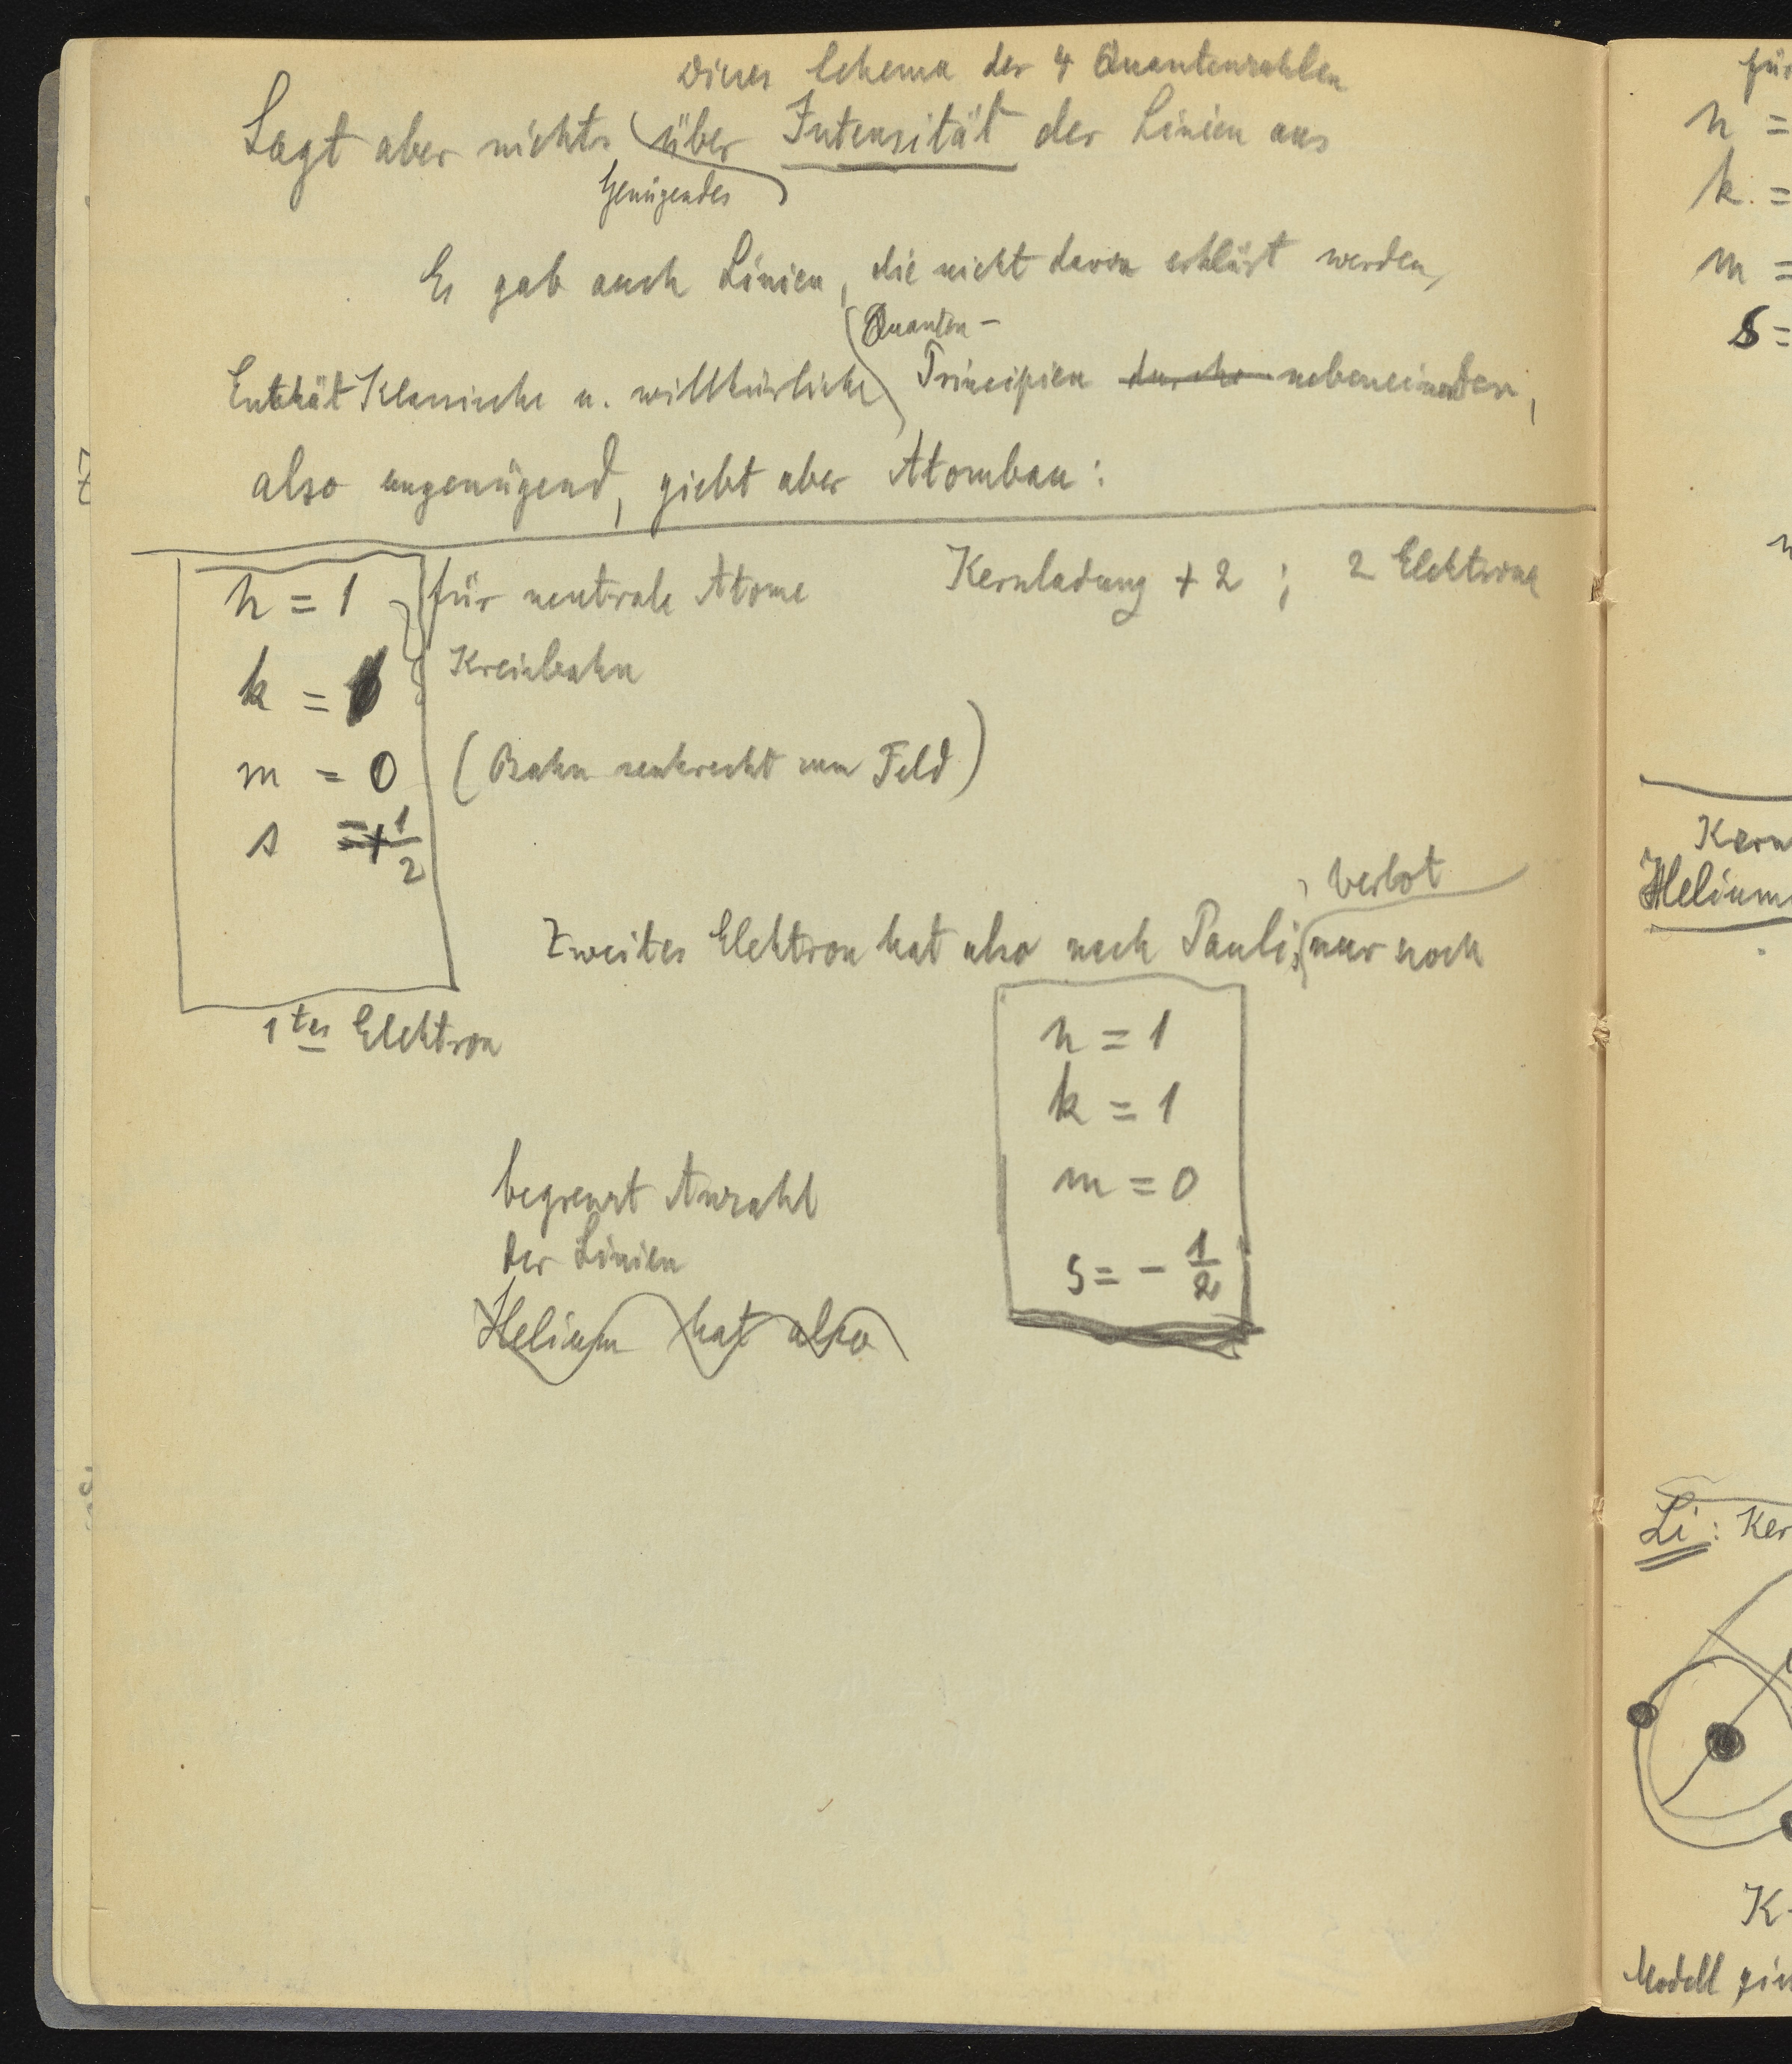 Dieses Schema der 4 Quantenzahlen
Sagt aber nichts über Intensität der Linien aus
Genügendes
Es gab auch Linien, die nicht davon erklärt werden,
Quanten-
Enthält Klassische u. willkürliche Principien durche nebeneinander,
also ungenügend, giebt aber Atombau:
n = 1 für neutrale Atome Kernladung + 2 ; 2 Elektrone
k = 1 Kreisbahn
m = 0 (Bahn senkrecht zum Feld)
s = + 1/2
Verbot
Zweites Elektron hat also nach Pauli nur noch
1tes Elektron
n = 1
k = 1
m = 0
s = - 1/2
begrenzt Anzahl
der Linien
Helium hat also
für
n =
k =
m =
s =
Kern
Helium
Li: Ker
K
Modell